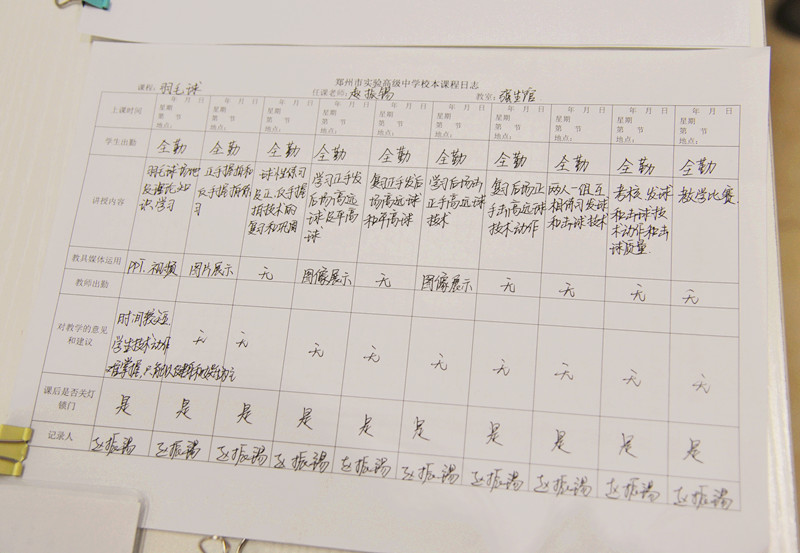 郑州市实验高级中学校本课程日志
课程：羽毛球 任课老师：赵振锡 教室：
上课时间 年 月 日 年 月 日 年 月 日 年 月 日 年 月 日 年 月 日 年 月 日 年 月 日 年 月 日 年 月 日
星期 星期 星期 星期 星期 星期 星期 星期 星期 星期
第 节 第 节 第 节 第 节 第 节 第 节 第 节 第 节 第 节 第 节
地点： 地点： 地点： 地点： 地点： 地点： 地点： 地点： 地点： 地点：
学生出勤 全勤 全勤 全勤 全勤 全勤 全勤 全勤 全勤 全勤 全勤
讲授内容
羽毛球场地
识学习
正手握拍和
反手握拍练
习
球性练习
及正、反手握
拍技术的
复习和巩固
学习正手发
后场高远
球及平高
球
复习正手发后
场高远球
和平高球
学习后场击
正手高远球
技术
复习后场正
手击高远球
技术动作
两人一组互
相练习发球
和击球技术
考核发球
和击球技
术动作和击
球质量
教学比赛
教具媒体运用 PPT、视频 图片展示 无 图像展示 无 图像展示 无 无 无 无
教师出勤
对教学的意见
和建议
时间较短
学生技术动作
无 无 无 无 无 无 无 无 无
课后是否关灯
锁门
是 是 是 是 是 是 是 是 是 是
记录人 赵振锡 赵振锡 赵振锡 赵振锡 赵振锡 赵振锡 赵振锡 赵振锡 赵振锡 赵振锡